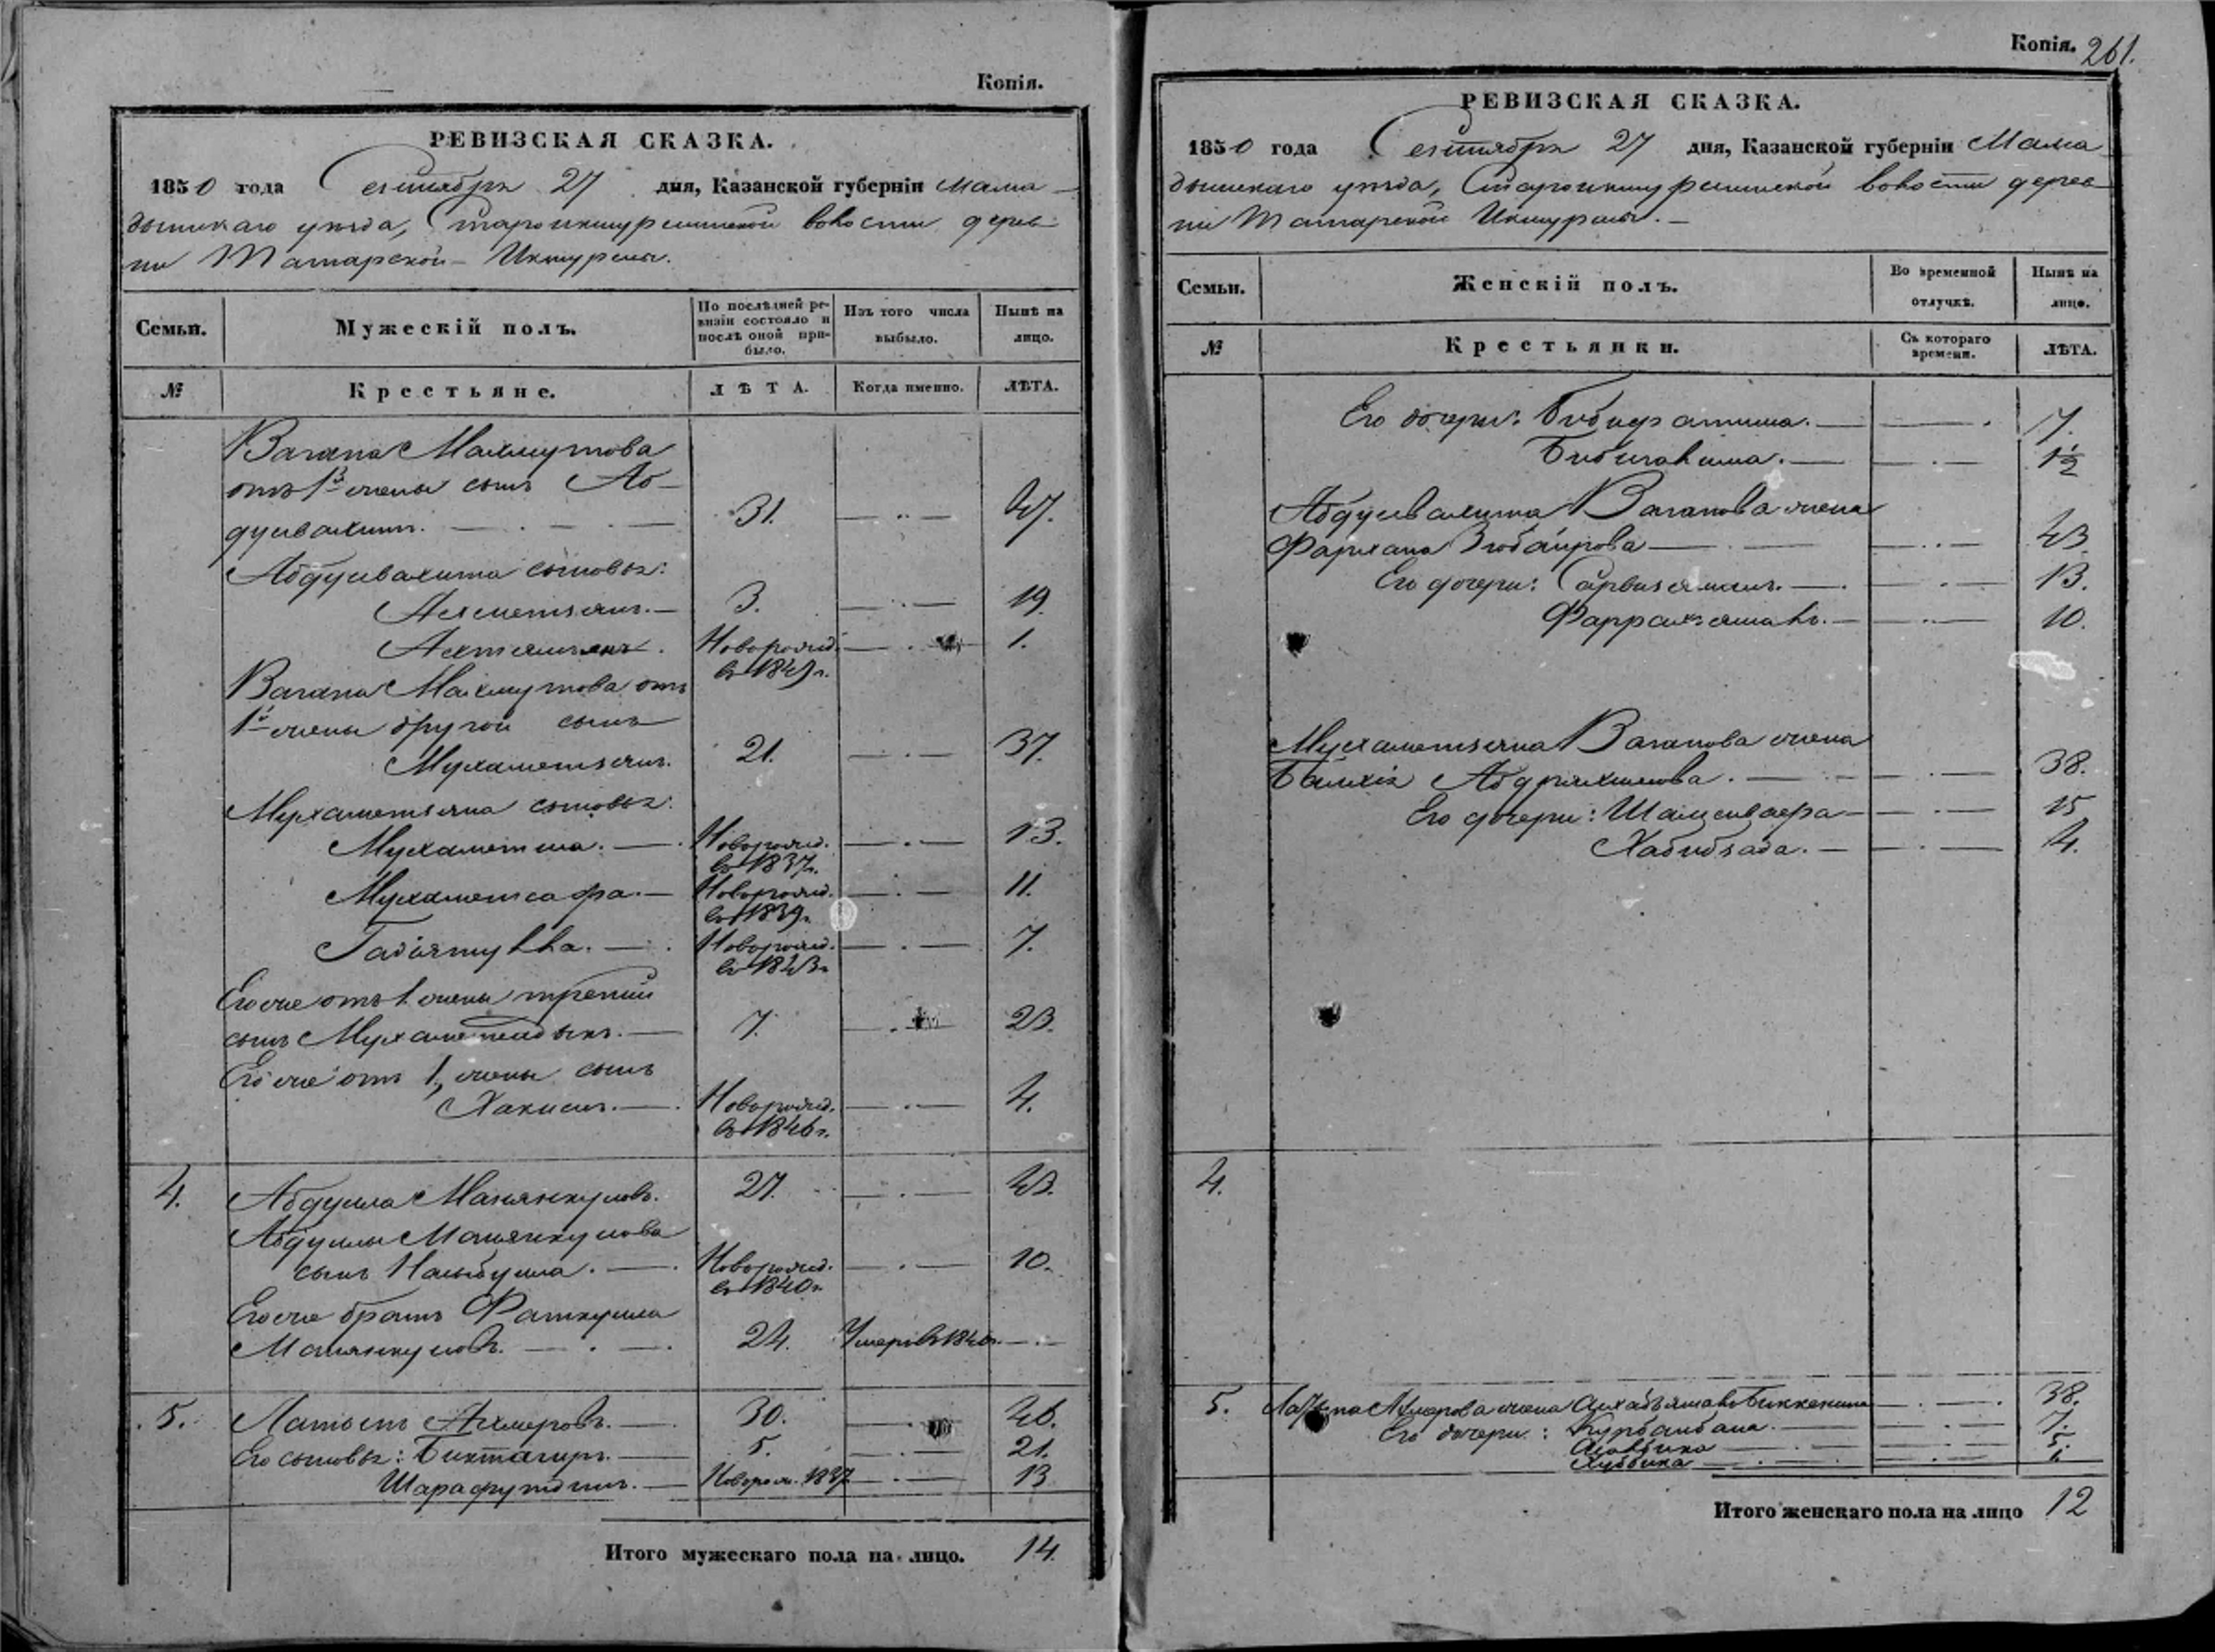 Копія.
РЕВИЗСКАЯ СКАЗКА.
1850 года Сентября 27 дня, Казанской губерніи Мама-
дышскаго уѣзда, Староикшурминской волости дерев-
ни Татарской Икшурмы.
Семьи. Мужескій полъ. По послѣдней ре-визіи состояло и послѣ оной при-было. Изъ того числа выбыло. Нынѣ на лицо.
№ Крестьяне. ЛѢТА. Когда именно. ЛѢТА.
Вагапа Махмутова
отъ 1й жены сынъ Аб-
дулвахитъ. 31. 47.
Абдулвахита сыновья:
Ахметзянъ. 3. 19.
Новорожд. 1.
въ 1849 г.
Вагапа Махмутова отъ
1й жены другой сынъ
Мухаметзянъ. 21. 37.
Мухаметзяна сыновья:
Мухаметша. Новорожд. 13.
въ 1837 г.
Мухаметсафа. Новорожд. 11.
въ 1839 г.
Новорожд. 7.
въ 1843 г.
Его же отъ 1 жены третій
сынъ Мухаметсадыкъ. 7. 23.
Его же отъ 1й жены сынъ
Хакимъ. Новорожд. 4.
въ 1846 г.
4. Абдулла 27. 43.
Абдуллы
сынъ Новорожд. 10.
въ 1840 г.
Его же братъ Фаткулла
24. Умеръ въ
5. Латыпъ Ахмеровъ. 30. 46.
Его сыновья: Биктагиръ. 5. 21.
Шарафутдинъ. Новорож. 1837 13
Итого мужескаго пола на лицо. 14.
Копія. 261.
РЕВИЗСКАЯ СКАЗКА.
1850 года Сентября 27 дня, Казанской губерніи Мама-
дышскаго уѣзда, Староикшурминской волости дерев-
ни Татарской Икшурмы.
Семьи. Женскій полъ. Во временной отлучкѣ. Нынѣ на лицо.
№ Крестьянки. Съ котораго времени. ЛѢТА.
Его дочери: Бибифатима. 7.
1½
Абдулвахита Вагапова жена
Фархана Зюбаирова 43.
Его дочери: Сарвизяманъ. 13.
10.
Мухаметзяна Вагапова жена
38.
Его дочери: 15
Хабибзада. 4.
4.
5. Латыпа Ахмерова жена 38.
Его дочери: Курбанбана. 7.
5.
Итого женскаго пола на лицо 12